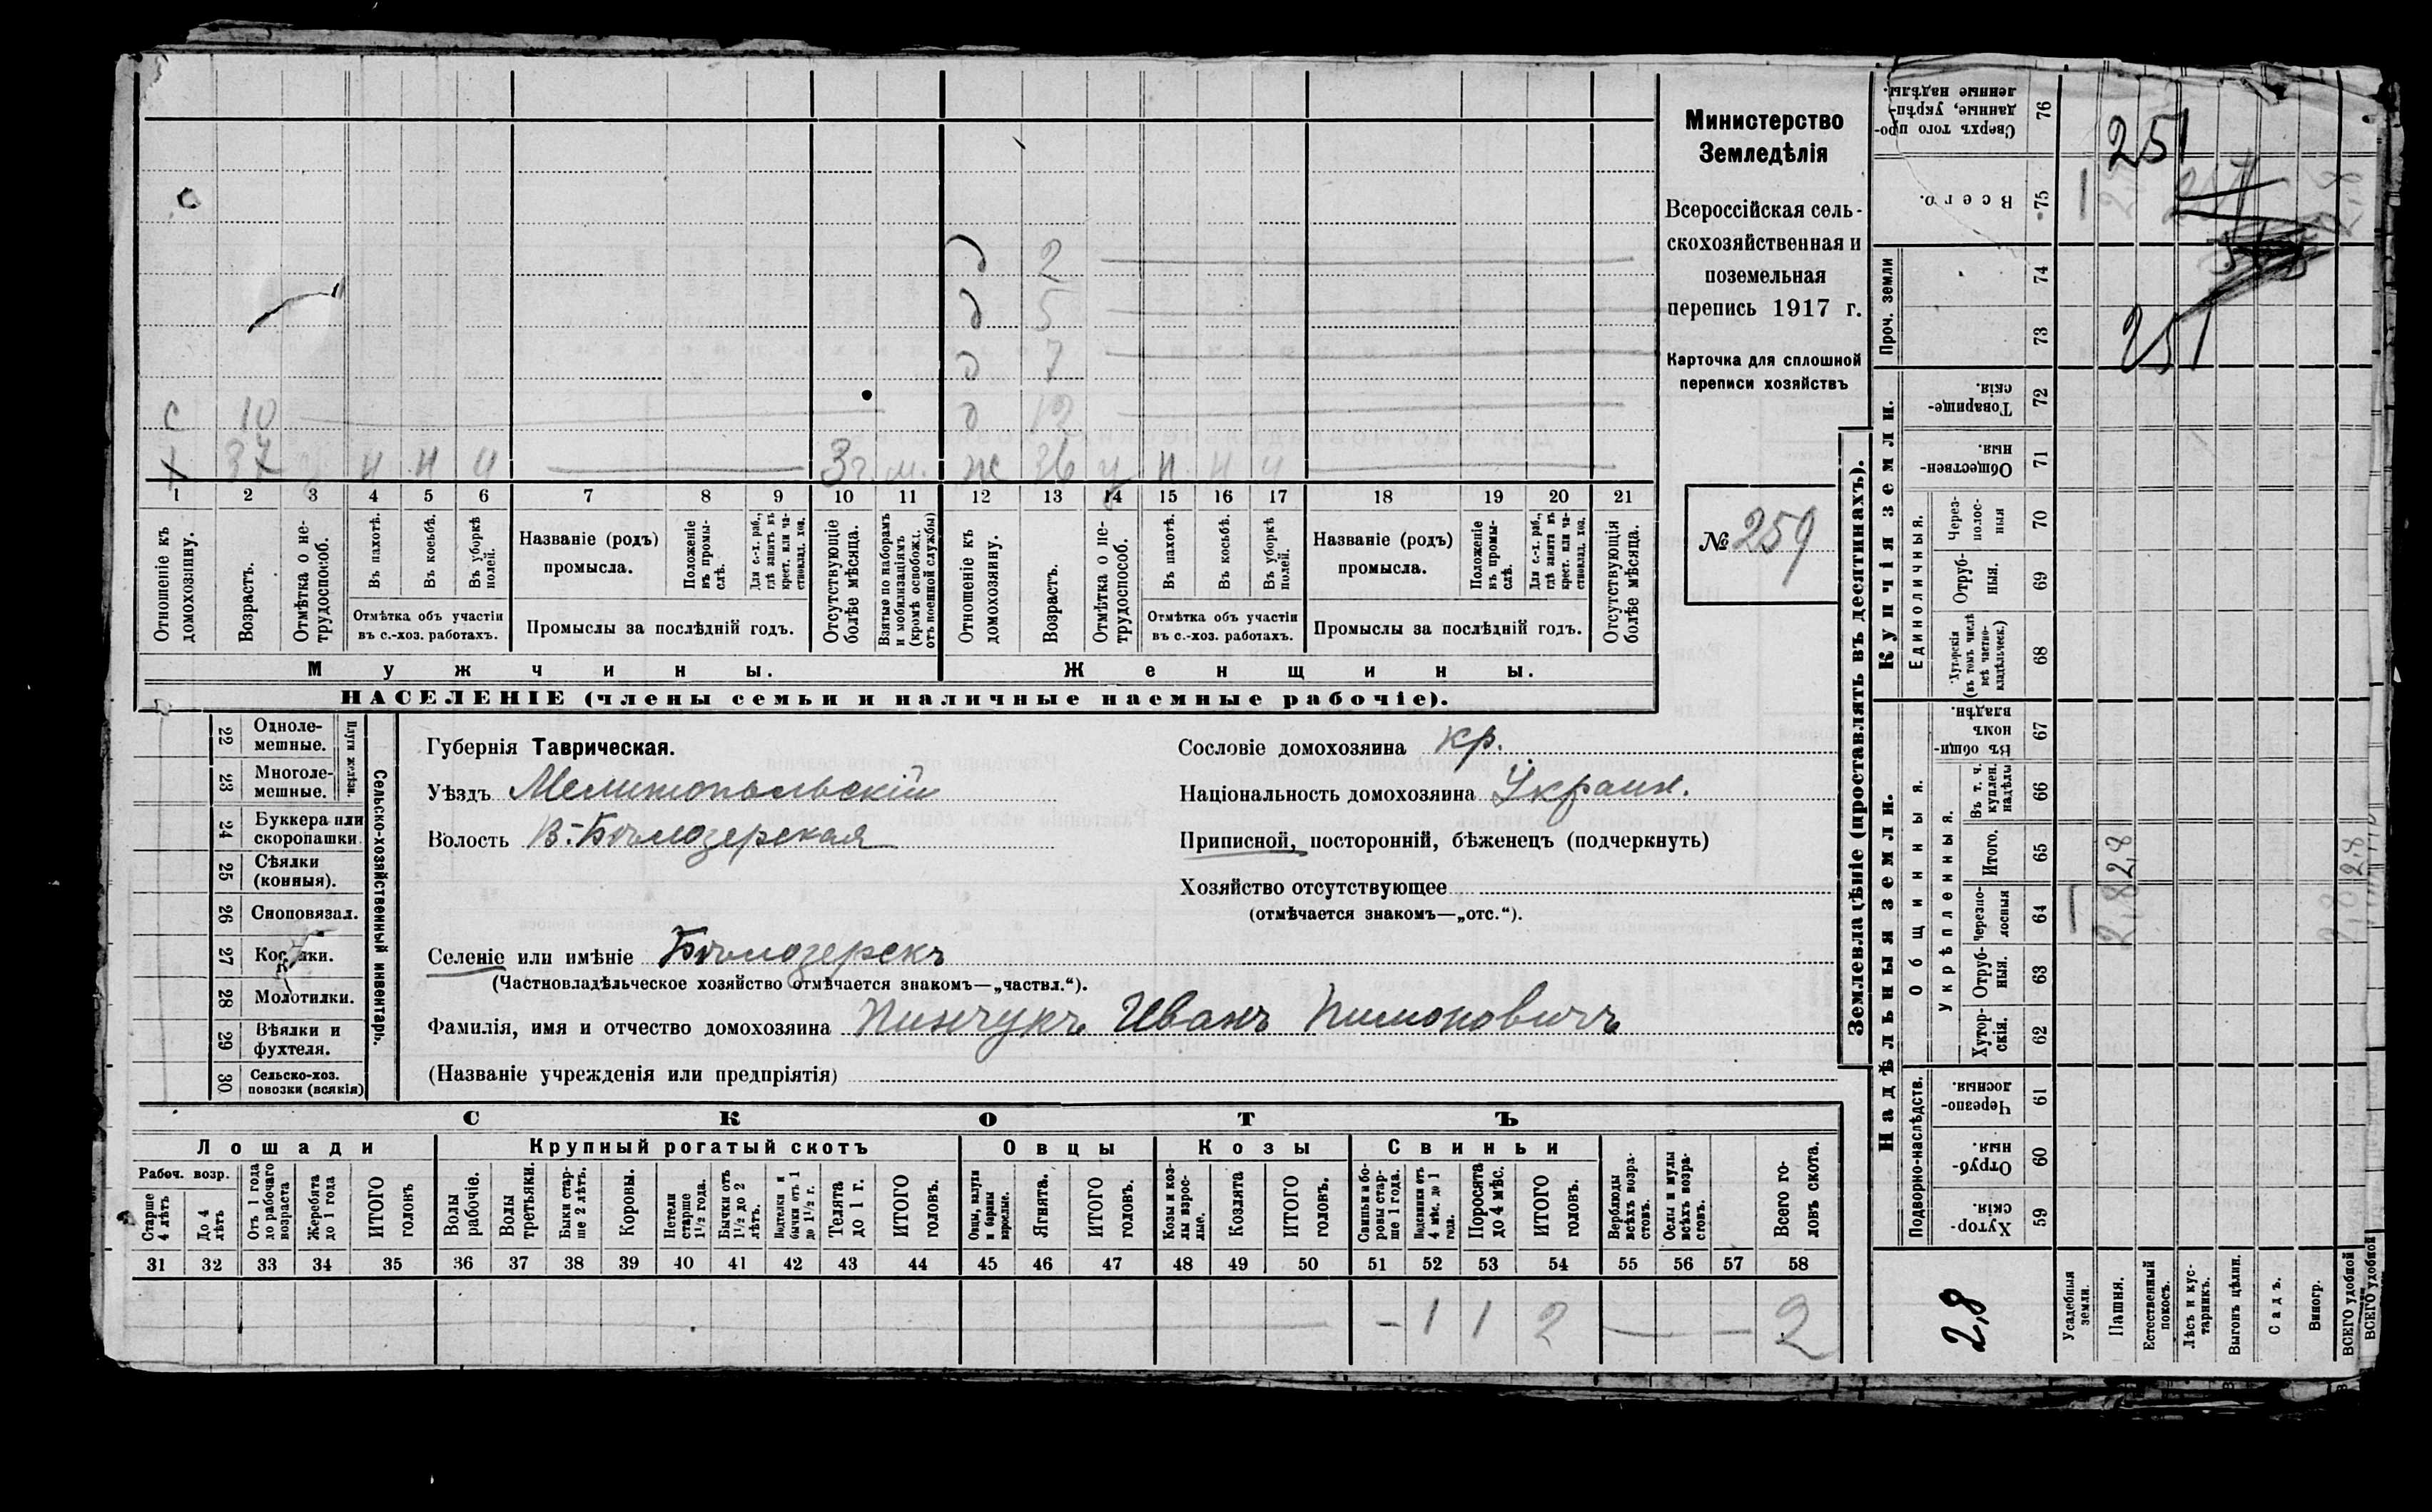 Министерство
Земледѣлія
Всероссійская сель-
скохозяйственная и
поземельная
перепись 1917 г.
Карточка для сплошной
переписи хозяйствъ
№ 259
д 2
д 5
д 7
с 10 д 12
х 37 у н н и 3 г. м. ж 36 у н н и
1 2 3 4 5 6 7 8 9 10 11 12 13 14 15 16 17 18 19 20 21
Отношеніе къ домохозяину.
Возрастъ.
Отмѣтка о не-трудоспособ.
Въ пахотѣ.
Въ косьбѣ.
Въ уборкѣ полей.
Отмѣтка объ участіи
въ с.-хоз. работахъ.
Названіе (родъ)
промысла.
Положеніе въ промы-слѣ.
Для с.-х. раб., гдѣ занятъ въ крест. или ча-стновлад. хоз.
Промыслы за послѣдній годъ.
Отсутствующіе болѣе мѣсяца.
Взятые по наборамъ и мобилизаціямъ (кромѣ освобожд. отъ военной службы)
Отношеніе къ домохозяину.
Возрастъ.
Отмѣтка о не-трудоспособ.
Въ пахотѣ.
Въ косьбѣ.
Въ уборкѣ полей.
Отмѣтка объ участіи
въ с.-хоз. работахъ.
Названіе (родъ)
промысла.
Положеніе въ промы-слѣ.
Для с.-х. раб., гдѣ занята въ крест. или ча-стновлад. хоз.
Промыслы за послѣдній годъ.
Отсутствующія болѣе мѣсяца.
Мужчины. Женщины.
НАСЕЛЕНІЕ (члены семьи и наличные наемные рабочіе).
22 Одноле-мешные.
23 Многоле-мешные.
Плуги желѣзн.
24 Буккера или скоропашки.
25 Сѣялки (конныя).
26 Сноповязал.
27 Косилки.
28 Молотилки.
29 Вѣялки и фухтеля.
30 Сельско-хоз. повозки (всякія)
Сельско-хозяйственный инвентарь.
Губернія Таврическая.
Уѣздъ Мелитопольскій
Волость В.-Бѣлозерская
Сословіе домохозяина кр.
Національность домохозяина Украин.
Приписной, посторонній, бѣженецъ (подчеркнуть)
Хозяйство отсутствующее
(отмѣчается знакомъ—„отс.“).
Селеніе или имѣніе Бѣлозерскъ
(Частновладѣльческое хозяйство отмѣчается знакомъ—„частвл.“).
Фамилія, имя и отчество домохозяина Пинчукъ Иванъ Пимоновичъ
(Названіе учрежденія или предпріятія)
СКОТЪ
Лошади Крупный рогатый скотъ Овцы Козы Свиньи
Рабоч. возр.
Старше 4 лѣтъ
До 4 лѣтъ
Отъ 1 года до рабочаго возраста
Жеребята до 1 года
ИТОГО головъ
Волы рабочіе.
Волы третьяки.
Быки стар-ше 2 лѣтъ.
Коровы.
Нетели старше 1½ года.
Бычки отъ 1½ до 2 лѣтъ.
Подтелки и бычки отъ 1 до 1½ г.
Телята до 1 г.
ИТОГО головъ.
Овцы, валухи и бараны взрослые.
Ягнята.
ИТОГО головъ.
Козы и коз-лы взрос-лые.
Козлята
ИТОГО головъ.
Свиньи и бо-ровы стар-ше 1 года.
Подсвинки отъ 4 мѣс. до 1 года.
Поросята до 4 мѣс.
ИТОГО головъ.
Верблюды всѣхъ возра-стовъ.
Ослы и мулы всѣхъ возра-стовъ.
Всего го-ловъ скота.
31 32 33 34 35 36 37 38 39 40 41 42 43 44 45 46 47 48 49 50 51 52 53 54 55 56 57 58
— 1 1 2 — — 2
Землевладѣніе (проставлять въ десятинахъ).
Надѣльныя земли. Купчія земли. Проч. земли
Подворно-наслѣдств.
Общинныя.
Укрѣпленныя.
Единоличныя.
Хутор-скія 59
Отруб-ныя. 60
Черезпо-лосныя. 61
Хутор-скія. 62
Отруб-ныя. 63
Черезпо-лосныя 64
Итого. 65
Въ т. ч. куплен. надѣлы 66
Въ общин-номъ владѣн. 67
Хуторскія (въ томъ числѣ всѣ частно-владѣльческ.) 68
Отруб-ныя. 69
Через-полос-ныя 70
Обществен-ныя. 71
Товарище-скія. 72
73
74
Всего. 75
Сверхъ того про-данные, укрѣп-ленные надѣлы. 76
Усадебныя земли.
Пашня.
Естественный покосъ.
Лѣсъ и кус-тарникъ.
Выгонъ цѣлин.
Садъ.
Виногр.
ВСЕГО удобной
ВСЕГО удобной
2,8
2,8 2,8
2,8 2,8
2,8
251
251